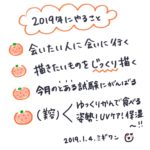 2019年にやること
会いたい人に会いに行く
描きたいものをじっくり描く
今月のとある試験にがんばる
(粽) ゆっくりかんで食べる
姿勢!UVケア!保湿
2019.1.4.ミギワン